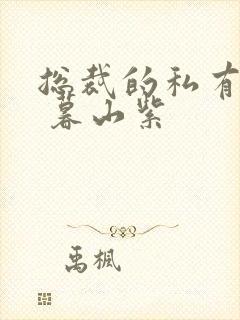 总裁的私有
暮山紫
禹枫